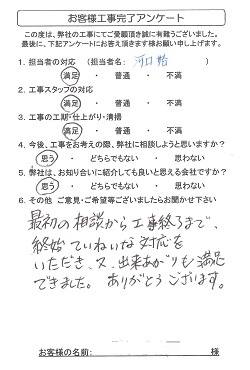 お客様工事完了アンケート
この度は、弊社の工事にてご愛顧頂き誠に有難うございました。
最後に、下記アンケートにお答え頂きます様お願い申し上げます。
1. 担当者の対応 (担当者名: 河口 )
満足 ・ 普通 ・ 不満
2. 工事スタッフの対応
満足 ・ 普通 ・ 不満
3. 工事の工期・仕上がり・清掃
満足 ・ 普通 ・ 不満
4. 今後、工事をお考えの際、弊社に相談しようと思いますか?
思う ・ どちらでもない ・ 思わない
5. 弊社は、お知り合いに紹介しても良いと思える会社ですか?
思う ・ どちらでもない ・ 思わない
6. その他 ご意見・ご希望等ございましたらお聞かせ下さい
最初の相談から工事終了まで、
終始ていねいな対応を
いただき、又、出来あがりも満足
できました。ありがとうございます。
お客様の名前: 様